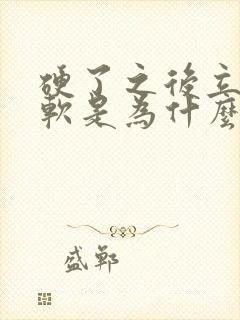 硬了之後立
軟是為什麼
盛鄴